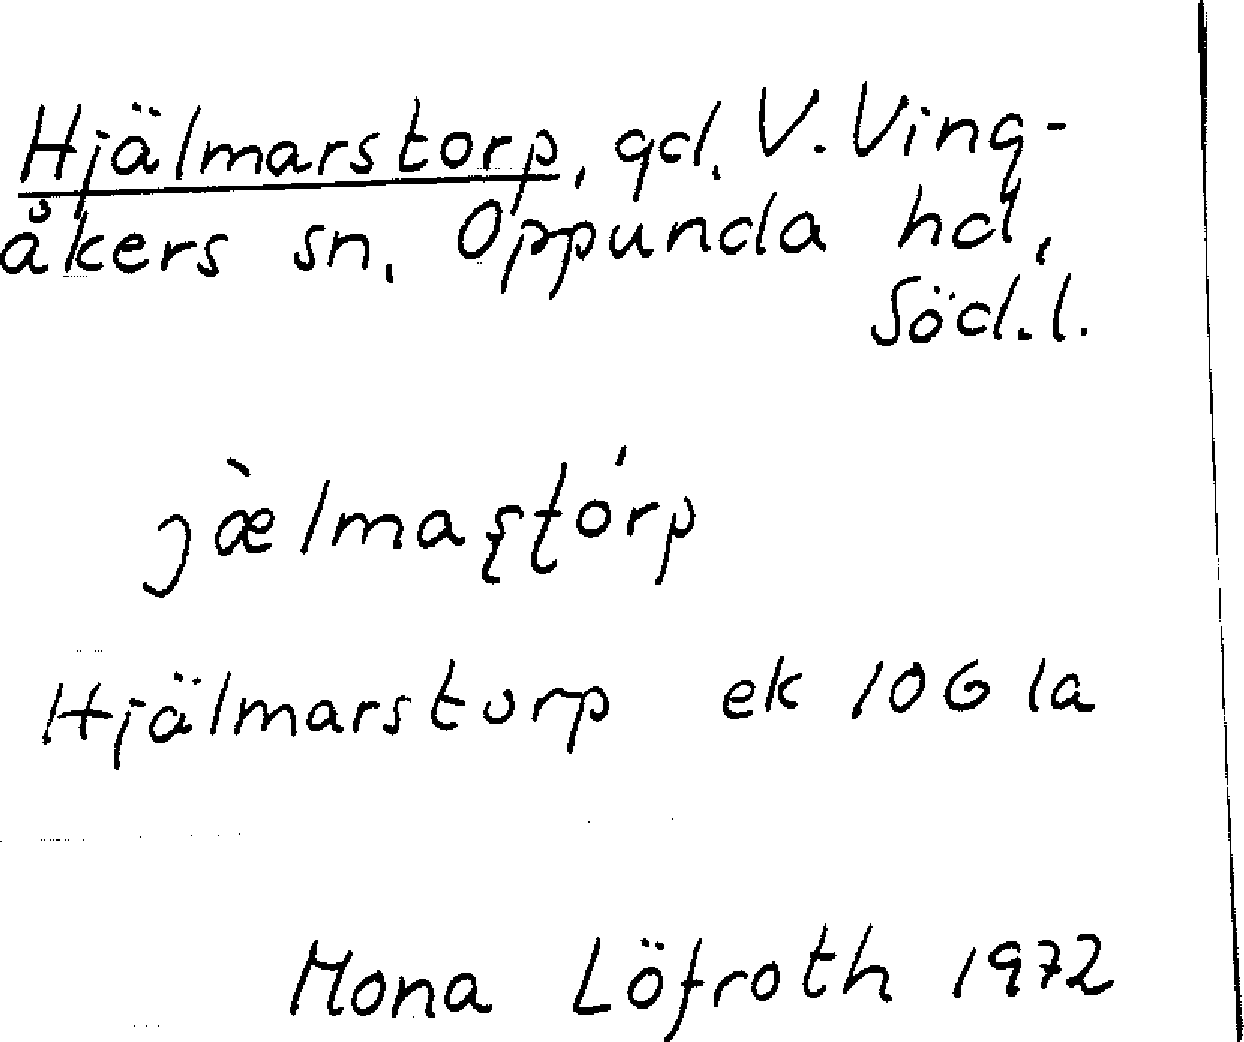 Hjälmarstorp, gd, V. Ving-
åkers sn, Oppunda hd,
Söd.l.
jæ̀lmaʂʈórp
Hjälmarstorp ek 10G 1a
Mona Löfroth 1972